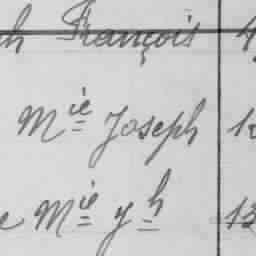 h François 4
Mie Joseph 12
e Mie yh 13